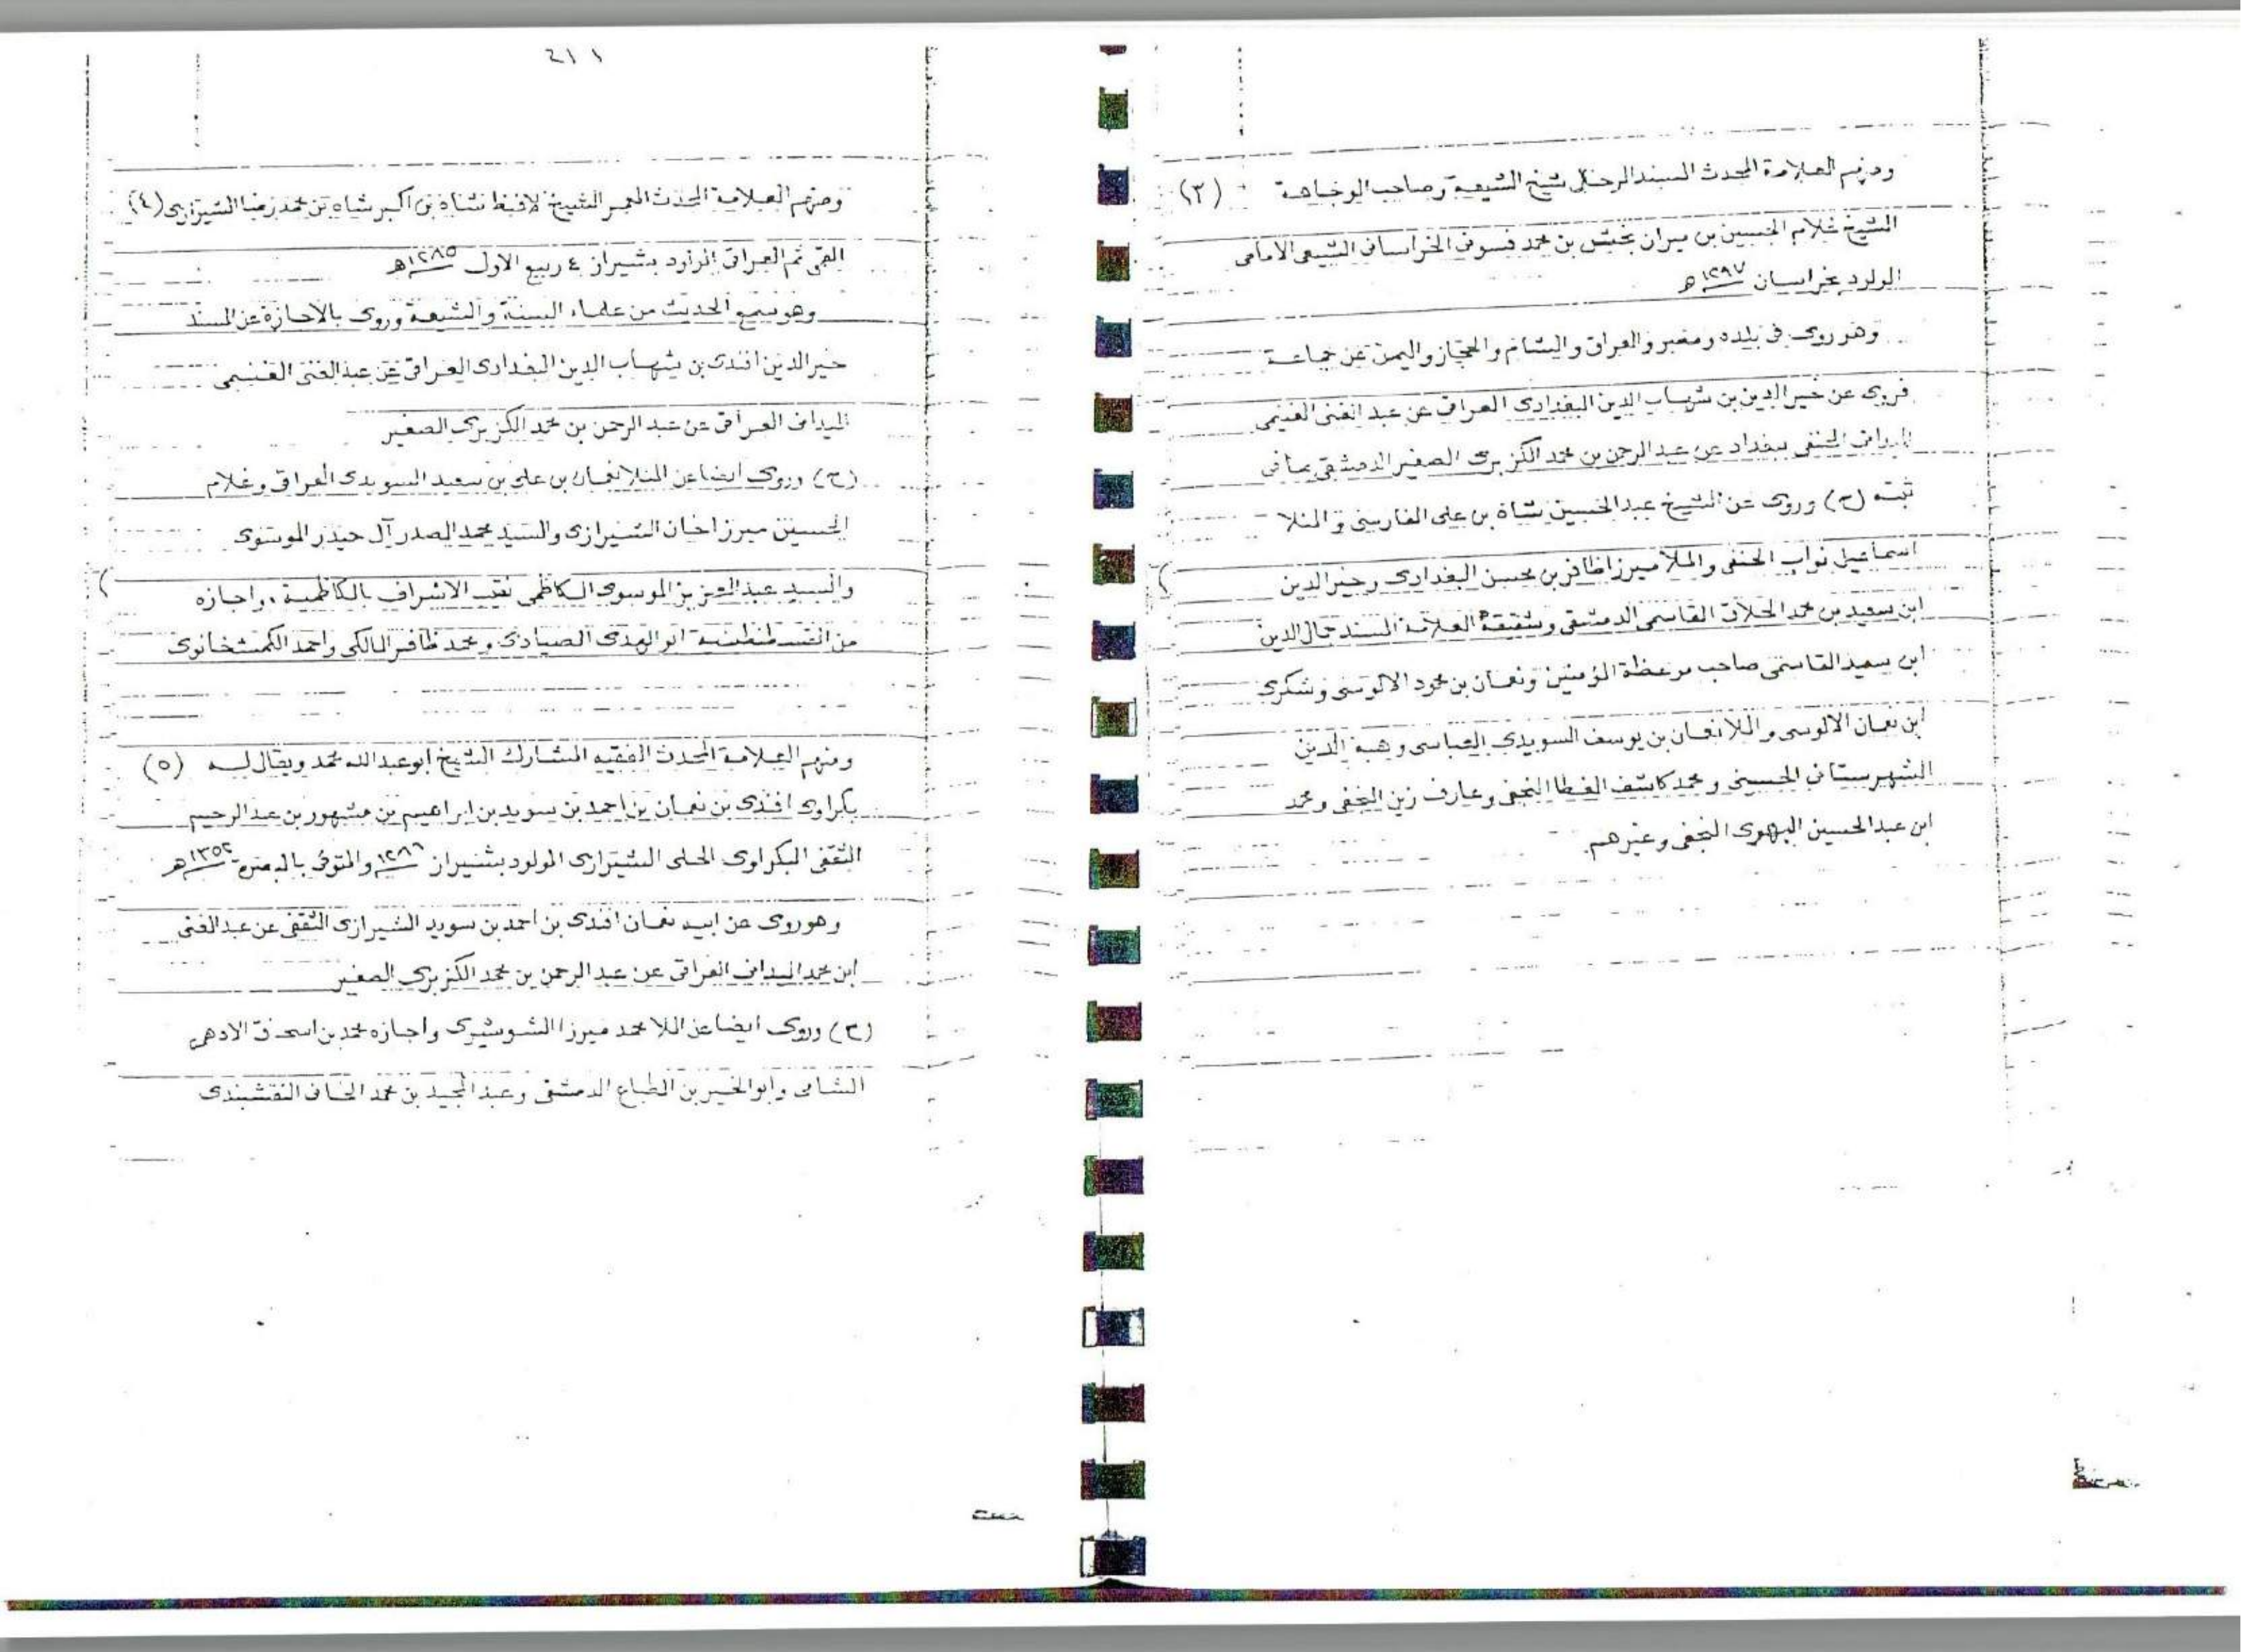 ومنهم العلامة المحدث المسند الرحال شيخ الشيعة وصاحب الوجاهة (٣)
الشيخ غلام الحسين بن ميران بخش بن محمد الخراساني الشيعي الامامي
المولود بخراسان ١٢٩٧ هـ
وهو روى في بلده ومصر والعراق والشام والحجاز واليمن عن جماعة
فروى عن خير الدين بن شهاب الدين البغدادى العراقي عن عبد الغني الغنيمي
الميداني ببغداد عن عبد الرحمن بن محمد الكزبرى الصغير الدمشقي بما في
ثبته (ح) وروى عن الشيخ عبد الحسين شاه بن على الفارسي و المنلا
اسماعيل نواب الحنفي والملا ميرزا ظافر بن محسن البغدادى وخير الدين
ابن سعيد بن محمد الحلاق القاسمي الدمشقي وشقيقه العلامة المسند جمال الدين
ابن سعيد القاسمي صاحب موعظة المؤمنين ونعمان بن محمود الالوسي وشكرى
ابن نعمان الالوسى و اللا نعمان بن يوسف السويدى العباسى وهبة الدين
الشهرستاني الحسيني و محمد كاشف الغطا النجفي وعارف زين النجفي ومحمد
ابن عبد الحسين البهوى النجفي وغيرهم.
٢١١
ومنهم العلامة المحدث المعمر الشيخ شاه بن اكبر شاه بن محمد رضا الشيرازى (٤)
ثم العراقي المولود بشيراز ٤ ربيع الاول ١٢٨٥ هـ
وهو سمع الحديث من علماء السنة والشيعة وروى بالاجازة عن المسند
خير الدين افندى بن شهاب الدين البغدادى العراقي عن عبد الغني الغنيمى
الميداني العراقي عن عبد الرحمن بن محمد الكزبرى الصغير
(ح) وروى ايضا عن المنلا نعمان بن على بن سعيد السويدى العراقي وغلام
الحسين ميرزا خان الشيرازى والسيد محمد الصدر آل حيدر الموسوى
والسيد عبد العزيز الموسوى الكاظمى نقيب الاشراف بالكاظمية ، واجازه
من القسطنطينية ابو الهدى الصيادى و محمد ظافر المالكى واحمد الكمشخانوى
ومنهم العلامة المحدث الفقيه المشارك الشيخ ابو عبد الله محمد ويقال له (٥)
بكراوى افندى بن نعمان بن احمد بن سويد بن ابراهيم بن مشهور بن عبد الرحيم
الثقفي البكراوى الحلى الشيرازى المولود بشيراز ١٢٨٦ والمتوفى بالبصرة ١٣٥٢ هـ
وهو روى عن ابيه نعمان افندى بن احمد بن سويد الشيرازى الثقفي عن عبد الغنى
ابن محمد الميداني العراقي عن عبد الرحمن بن محمد الكزبرى الصغير
(ح) وروى ايضا عن اللا محمد ميرزا الشوشيرى واجازه محمد بن اسحاق الادهمى
الشامى وابو الخير بن الطباع الدمشقى وعبد المجيد بن محمد الخانى النقشبندى